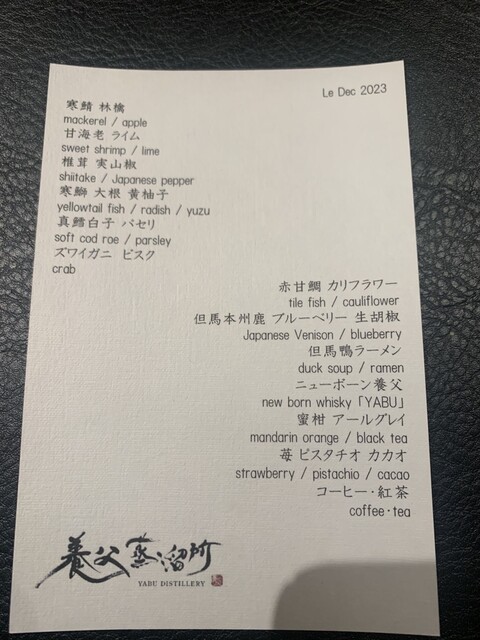 Le Dec 2023
寒鯖 林檎
mackerel / apple
甘海老 ライム
sweet shrimp / lime
椎茸 実山椒
shiitake / Japanese pepper
寒鰤 大根 黄柚子
yellowtail fish / radish / yuzu
真鱈白子 パセリ
soft cod roe / parsley
ズワイガニ ビスク
crab
赤甘鯛 カリフラワー
tile fish / cauliflower
但馬本州鹿 ブルーベリー 生胡椒
Japanese Venison / blueberry
但馬鴨ラーメン
duck soup / ramen
ニューボーン養父
new born whisky「YABU」
蜜柑 アールグレイ
mandarin orange / black tea
苺 ピスタチオ カカオ
strawberry / pistachio / cacao
コーヒー・紅茶
coffee・tea
養父蒸溜所
YABU DISTILLERY